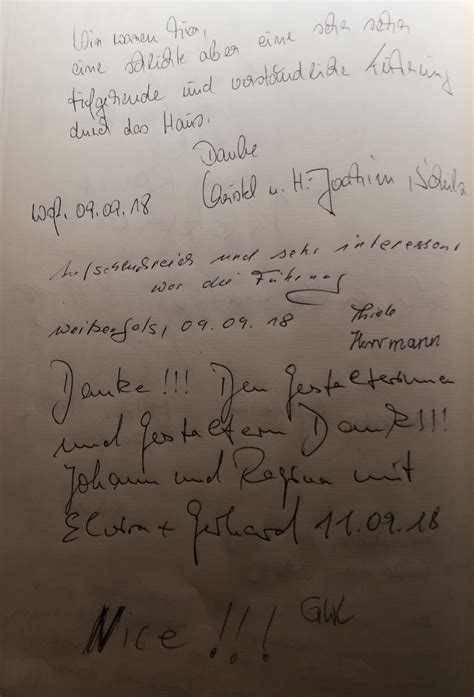 Wir waren hier,
eine schlichte aber eine sehr sehr
tiefgehende und verständliche Führung
durch das Haus.
Danke
Christel u. H.-Joachim Schulz
Wsf, 09.09.18
Aufschlussreich und sehr interessant
war die Führung
Weißenfels, 09.09.18
Thiele
Herrmann
Danke!!! Den Gestalterinnen
und Gestaltern Dank!!!
Johann und Regina mit
Elvira + Gerhard 11.09.18
Nice!!! GWK